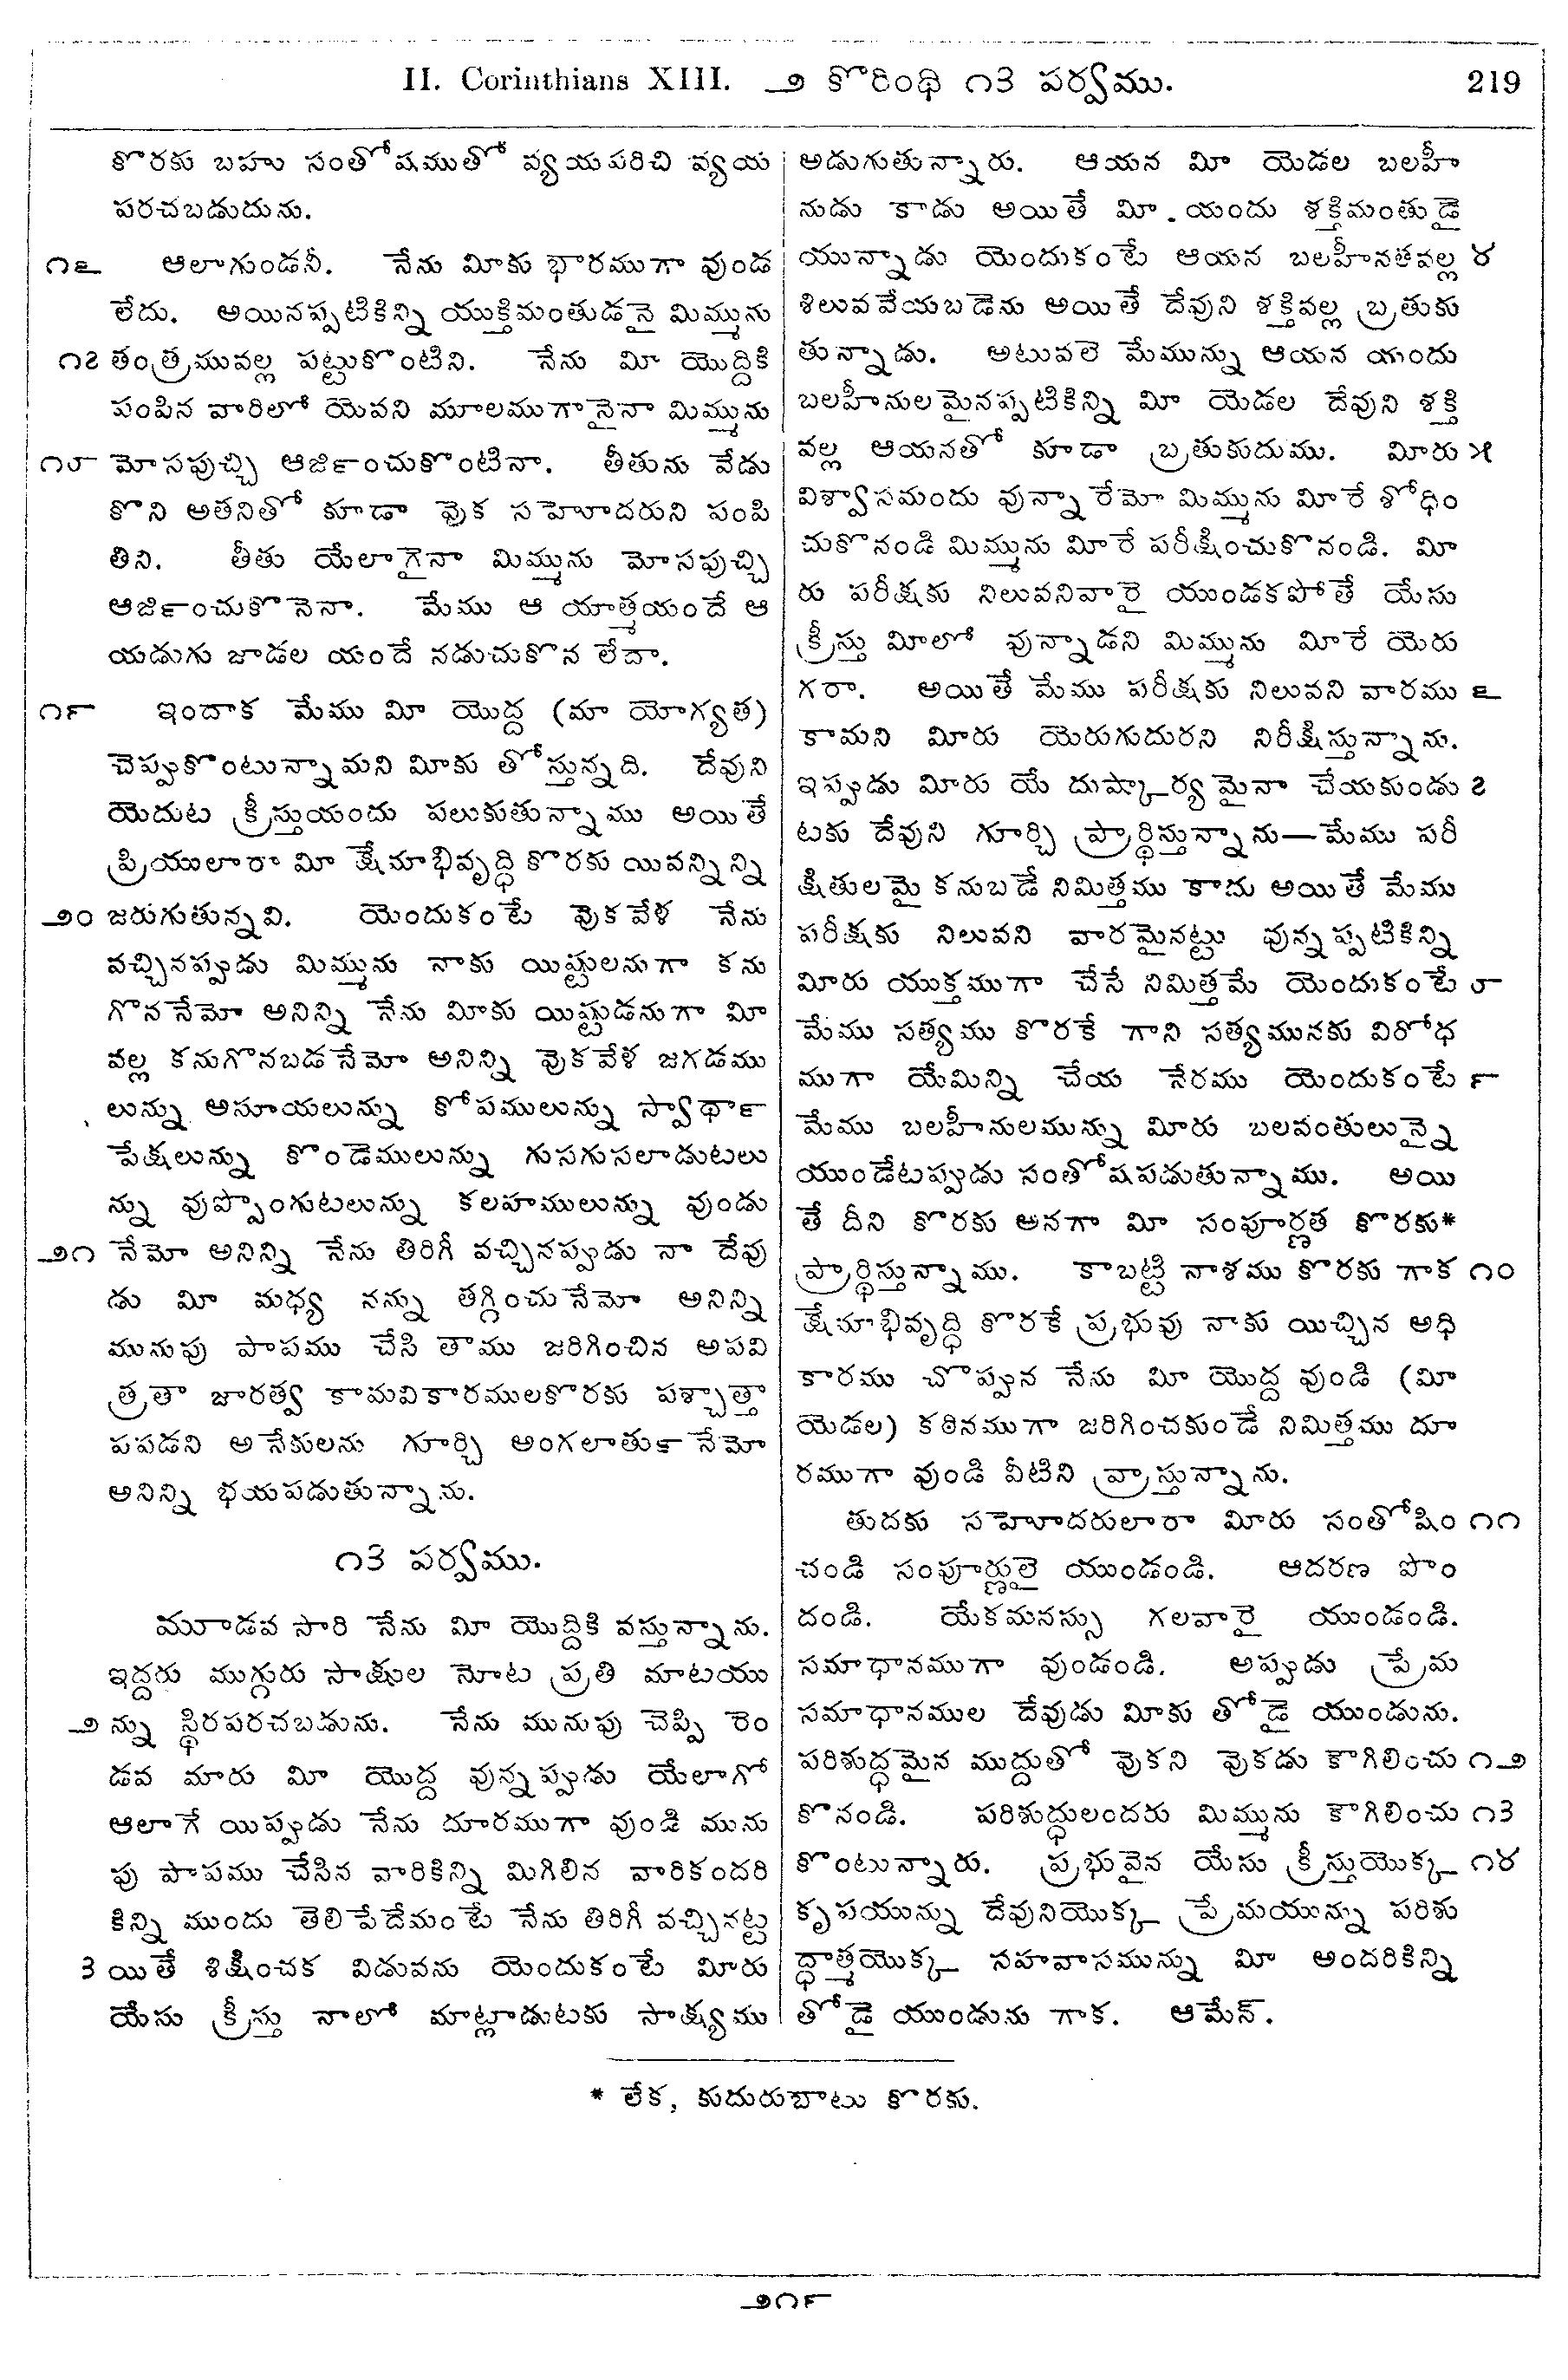 II. Corinthians XIII. ౨ కొరింథి ౧౩ పర్వము. 219
కొరకు బహు సంతోషముతో వ్యయపరిచి వ్యయ
పరచబడుదును.
౧౬ ఆలాగుండనీ. నేను మీకు భారముగా వుండ
లేదు. అయినప్పటికిన్ని యుక్తిమంతుడనై మిమ్మును
౧౭ తంత్రమువల్ల పట్టుకొంటిని. నేను మీ యొద్దికి
పంపిన వారిలో యెవని మూలముగానైనా మిమ్మును
౧౮ మోసపుచ్చి ఆజిణంచుకొంటినా. తీతును వేడు
కొని అతనితో కూడా వ్రొక సహోదరుని పంపి
తిని. తీతు యేలాగైనా మిమ్మును మోసపుచ్చి
ఆజిఁణంచుకొనెనా. మేము ఆ యాత్మయందే ఆ
యడుగు జాడల యందే నడుచుకొన లేదా.
౧౯ ఇందాక మేము మీ యొద్ద (మా యోగ్యత)
చెప్పుకొంటున్నామని మీకు తోస్తున్నది. దేవుని
యెదుట క్రీస్తుయందు పలుకుతున్నాము అయితే
ప్రియులారా మీ క్షేమాభివృద్ధి కొరకు యివన్నిన్ని
౨౦ జరుగుతున్నవి. యెందుకంటే వొకవేళ నేను
వచ్చినప్పుడు మిమ్మును నాకు యిష్టులనుగా కను
గొననేమో అనిన్ని నేను మీకు యిష్టుడనుగా మీ
వల్ల కనుగొనబడనేమో అనిన్ని వొకవేళ జగడము
లున్ను అసూయలున్ను కోపములున్ను స్వాథాణ
పేక్షలున్ను కొండెములున్ను గుసగుసలాడుటలు
న్ను వుప్పొంగుటలున్ను కలహములున్ను వుండు
౨౧ నేమో అనిన్ని నేను తిరిగీ వచ్చినప్పుడు నా దేవు
డు మీ మధ్య నన్ను తగ్గించునేమో అనిన్ని
మునుపు పాపము చేసి తాము జరిగించిన అపవి
త్రతా జారత్వ కామవికారములకొరకు పశ్చాత్తా
పపడని అనేకులను గూర్చి అంగలాతుణనేమో
అనిన్ని భయపడుతున్నాను.
౧౩ పర్వము.
మూడవ సారి నేను మీ యొద్దికి వస్తున్నాను.
ఇద్దరు ముగ్గురు సాక్షుల నోట ప్రతి మాటయు
౨ న్ను స్థిరపరచబడును. నేను మునుపు చెప్పి రెం
డవ మారు మీ యొద్ద వున్నప్పుడు యేలాగో
ఆలాగే యిప్పుడు నేను దూరముగా వుండి మును
పు పాపము చేసిన వారికిన్ని మిగిలిన వారికందరి
కిన్ని ముందు తెలిపేదేమంటే నేను తిరిగీ వచ్చినట్ట
౩ యితే శిక్షించక విడువను యెందుకంటే మీరు
యేసు క్రీస్తు నాలో మాట్లాడుటకు సాక్ష్యము
అడుగుతున్నారు. ఆయన మీ యెడల బలహీ
నుడు కాడు అయితే మీ యందు శక్తిమంతుడై
యున్నాడు యెందుకంటే ఆయన బలహీనతవల్ల ౪
శిలువవేయబడెను అయితే దేవుని శక్తివల్ల బ్రతుకు
తున్నాడు. అటువలె మేమున్ను ఆయన యందు
బలహీనులమైనప్పటికిన్ని మీ యెడల దేవుని శక్తి
వల్ల ఆయనతో కూడా బ్రతుకుదుము. మీరు ౫
విశ్వాసమందు వున్నారేమో మిమ్మును మీరే శోధిం
చుకొనండి మిమ్మును మీరే పరీక్షించుకొనండి. మీ
రు పరీక్షకు నిలువనివారై యుండకపోతే యేసు
క్రీస్తు మీలో వున్నాడని మిమ్మును మీరే యెరు
గరా. అయితే మేము పరీక్షకు నిలువని వారము ౬
కామని మీరు యెరుగుదురని నిరీక్షిస్తున్నాను.
ఇప్పుడు మీరు యే దుష్కార్యమైనా చేయకుండు ౭
టకు దేవుని గూర్చి ప్రార్థిస్తున్నాను—మేము పరీ
క్షితులమై కనుబడే నిమిత్తము కాదు అయితే మేము
పరీక్షకు నిలువని వారమైనట్టు వున్నప్పటికిన్ని
మీరు యుక్తముగా చేసే నిమిత్తమే యెందుకంటే ౮
మేము సత్యము కొరకే గాని సత్యమునకు విరోధ
ముగా యేమిన్ని చేయ నేరము యెందుకంటే ౯
మేము బలహీనులమున్ను మీరు బలవంతులున్నై
యుండేటప్పుడు సంతోషపడుతున్నాము. అయి
తే దీని కొరకు అనగా మీ సంపూర్ణత కొరకు*
ప్రార్థిస్తున్నాము. కాబట్టి నాశము కొరకు గాక ౧౦
క్షేమాభివృద్ధి కొరకే ప్రభువు నాకు యిచ్చిన అధి
కారము చొప్పున నేను మీ యొద్ద వుండి (మీ
యెడల) కఠినముగా జరిగించకుండే నిమిత్తము దూ
రముగా వుండి వీటిని వ్రాస్తున్నాను.
తుదకు సహోదరులారా మీరు సంతోషిం ౧౧
చండి సంపూర్ణులై యుండండి. ఆదరణ పొం
దండి. యేకమనస్సు గలవారై యుండండి.
సమాధానముగా వుండండి. అప్పుడు ప్రేమ
సమాధానముల దేవుడు మీకు తోడై యుండును.
పరిశుద్ధమైన ముద్దుతో వొకని వొకడు కౌగిలించు ౧౨
కొనండి. పరిశుద్ధులందరు మిమ్మును కౌగిలించు ౧౩
కొంటున్నారు. ప్రభువైన యేసు క్రీస్తుయొక్క ౧౪
కృపయున్ను దేవునియొక్క ప్రేమయున్ను పరిశు
ద్ధాత్మయొక్క సహవాసమున్ను మీ అందరికిన్ని
తోడై యుండును గాక. ఆమేన్.
* లేక, కుదురుబాటు కొరకు.
౨౧౯